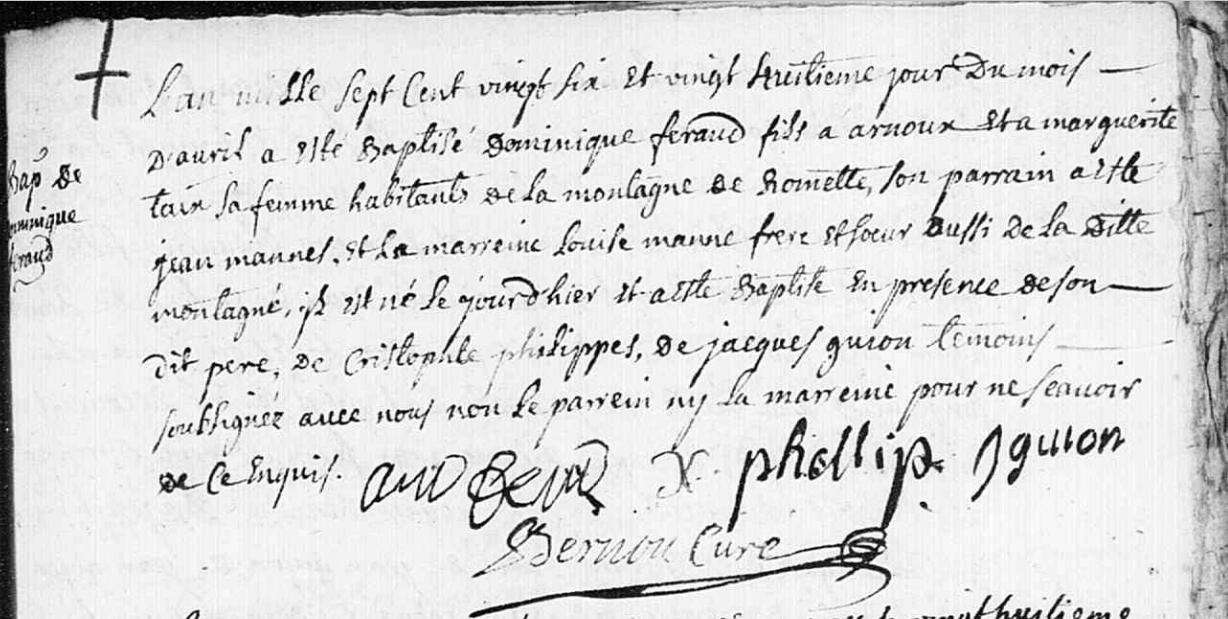 Bap. de
Dominique
feraud
L'an mille sept Cent vingt six et vingt huitieme jour Du mois
D'avril a esté Baptisé Dominique feraud fils a arnoux et a marguerite
taix sa femme habitants de la montagne de Romette, son parrain a este
jean mannes, et la marreine Louise manne frere et soeur aussi de la ditte
montagne, il est né le jourd'hier et a este Baptise en presence de son
dit pere, de Cristophle philippes, de jacques guion temoins
soubsignéz avec nous non le parrein ny la marreine pour ne scavoir
de ce enquis. X phellip. J guion
Bernou Curé
huitieme